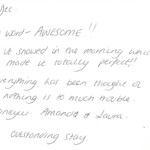 word - AWESOME!!
snowed in the morning which
made it totally perfect!!
everything has been thought of
nothing is to much trouble.
Amanda & Laura.
outstanding stay.